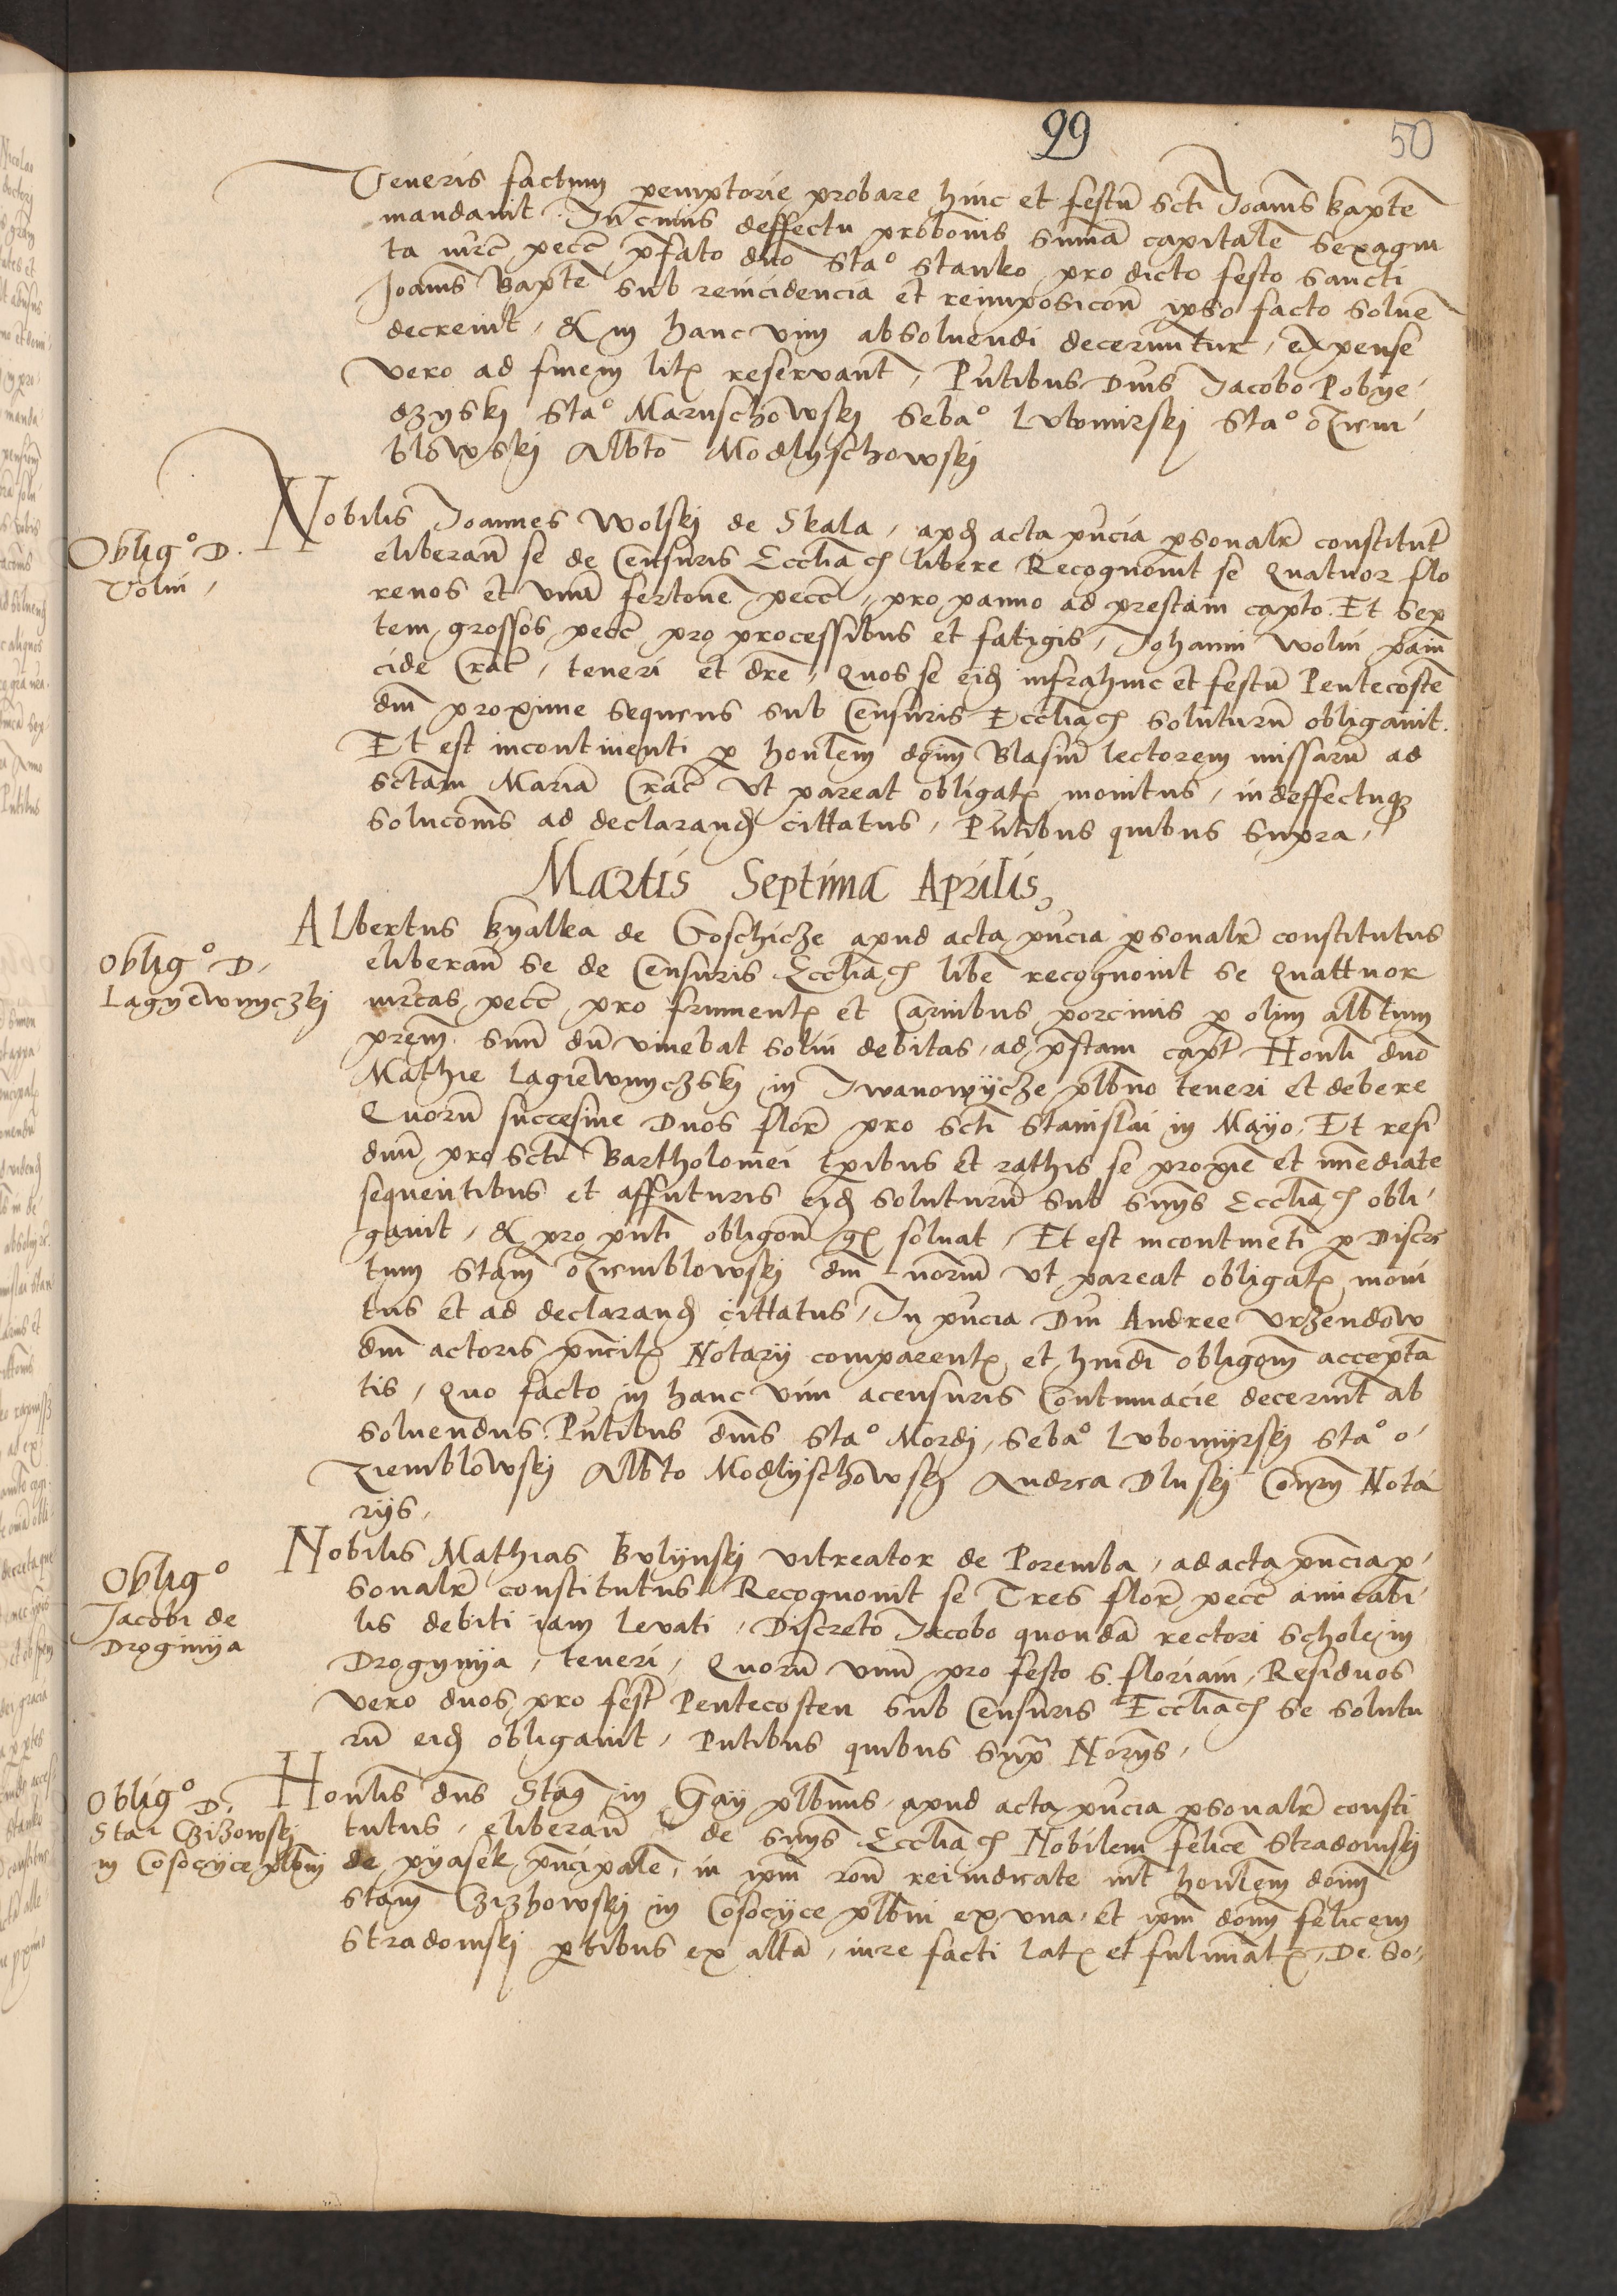 99
50
Veneris factum peremptorie probare hinc et festū Scti Joannis bapte
mandavit. In cuius deffectu probonis Sumā capitalē Sexagin
ta mrc pecc pfato dno Stao Stanko pro dicto festo Sancti
Joannis Bapte sub reincidencia et reimposicon ipso facto solue
decreuit, & in hanc vim absoluendi decernuntur, expense
vero ad finem litis reservant, Pntibus Dnis Jacobo Pobye
dzyski Stao Maruschowskj Sebao Lubomirskj Stao
blowskj Albto Modlyschowskj
Obligo D.
Volin,
Nobilis Joannes Wolskj de Skala, apd acta pncia psonalr constitut
eliberan se de Censuris Ecclia libere Recognouit se Quatuor flo
renos et vnū fertone pecc, pro panno ad prestam capto. Et Sep
tem grossos pecc pro processibus et fatigis, Johanni wolin pani
cide Crac, teneri et dre, Quos se eid infrahinc et festū Pentecoste
dm proxime sequens sub Censuris Ecclia soluturū obligauit.
Et est incontinenti p honlem dom Blasiū lectorem missarū ad
sctam Mariā Crac vt pareat obligat monitus, in deffectuq
solucois ad declarand cittatus, Pntibus quibus supra,
Martis Septima Aprilis
Obligo D.
Lagyewnyczkj
Albertus Byalka de Goschicze apud acta pncia psonalr constitutus
eliberan se de Censuris Ecclia libe recognouit se Quattuor
mrcas pecc pro frument et Carnibus porcinis p olim albtum
prem suū dū viuebat solui debitas, ad pstam capt Honli dno
Mathie Lagiewnyczskj in Iwanowycze plbno teneri et debere
Quorū succesiue Duos flor pro scti Stanislai in Mayo, Et resi
duū pro scti Bartholomei tpibus et rathis se proxie et imediate
sequentibus et affuturis eid soluturū sub snys Ecclia obli
gauit, & pro pnti obligon soluat, Et est incontineti p Discre
tum Stam Oziemblowskj dm norm vt pareat obligat moni
tus et ad declarand cittatus, In pncia Dni Andree Vrzendow
dm actoris pncit Notary comparent et hmdi obligom accepta
tis, Quo facto in hanc vim acensuris Contumacie decerint ab
soluendus Pntibus dnis Stao Mordj, Sebao Lubomyrskj Stao O
Ziemblowskj Albto Modlyschowskj Andrea Dluskj Consn Nota
rys,
Obligo
Jacobi de
Drogimya
Nobilis Mathias Bulynskj vitreator de Poremba, ad acta pncia p
sonalr constitutus Recognouit se Tres flor pecc amicabi
lis debiti iam levati, Discreto Jacobo quondā rectori schole in
Drogynya, teneri, Quorū vnū pro festo S. floriani, Residuos
vero duos pro fest Pentecosten sub Censuris Ecclia se solutu
rū eid obligauit, Pntibus quibus sup Norys,
Obligo D.
Stai Czizowskj
in Cosocyce plbni
Honlis dns Stas in Gay plbnus, apud acta pncia psonalr consti
tutus, eliberan de snys Ecclia Nobilem felice Stradomskj
de pyasek pncipale, in ipm ron rei iudicate int honlem doim
Stam Czizhowskj in Cosocyce plbni ex vna, et ipm dom felicem
Stradomskj ptibus ex altā, in re facti lat et fulminat, De So,